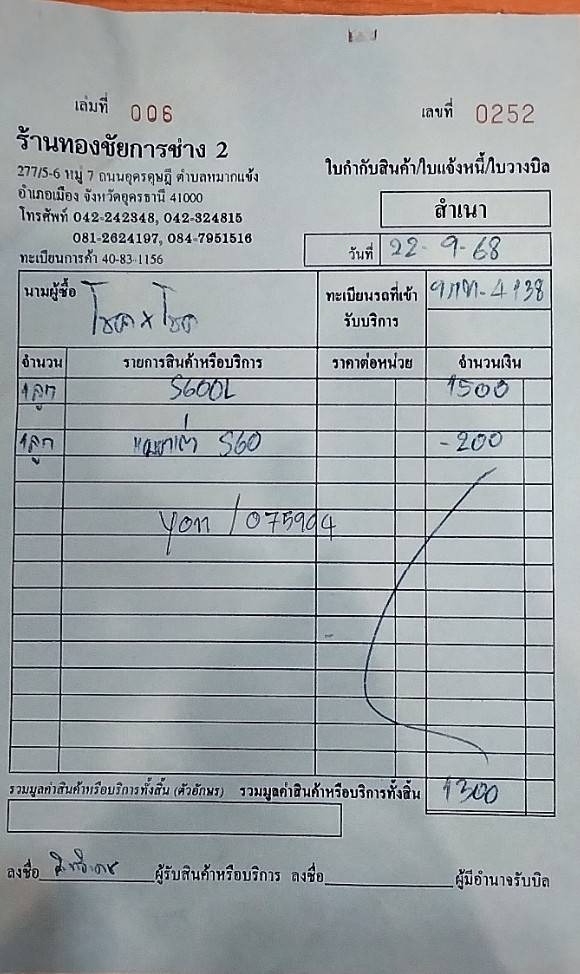 เล่มที่ 006 เลขที่ 0252
ร้านทองชัยการช่าง 2
277/5-6 หมู่ 7 ถนนอุดรดุษฎี ตำบลหมากแข้ง
อำเภอเมือง จังหวัดอุดรธานี 41000
โทรศัพท์ 042-242348, 042-324815
081-2624197, 084-7951516
ทะเบียนการค้า 40-83-1156
ใบกำกับสินค้า/ใบแจ้งหนี้/ใบวางบิล
สำเนา
วันที่ 22-9-68
นามผู้ซื้อ โชค x โชค
ทะเบียนรถที่เข้ารับบริการ -4138
จำนวน รายการสินค้าหรือบริการ ราคาต่อหน่วย จำนวนเงิน
1ลูก S600L 1500
1ลูก S60 -200
/ 075904
รวมมูลค่าสินค้าหรือบริการทั้งสิ้น (ตัวอักษร) รวมมูลค่าสินค้าหรือบริการทั้งสิ้น 1300
ลงชื่อ ผู้รับสินค้าหรือบริการ ลงชื่อ ผู้มีอำนาจรับบิล